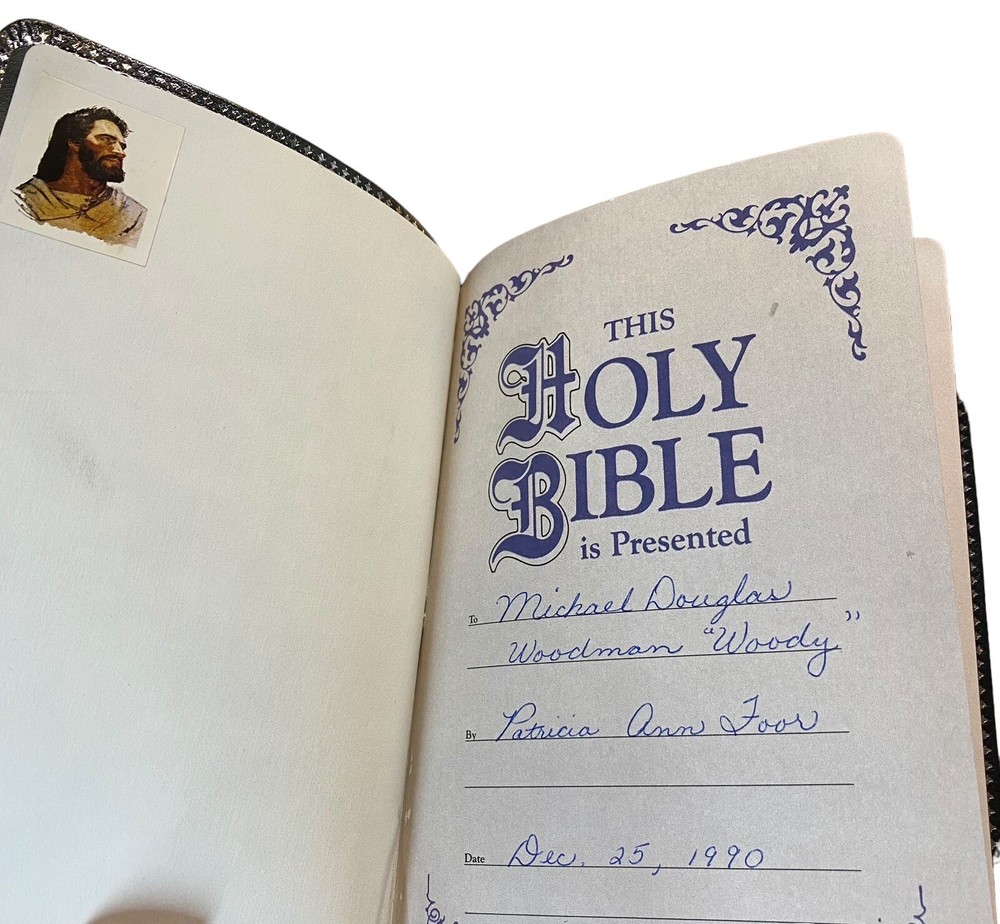 THIS
HOLY
BIBLE
is Presented
To Michael Douglas
Woodman "Woody"
By Patricia Ann Foor
Date Dec. 25, 1990